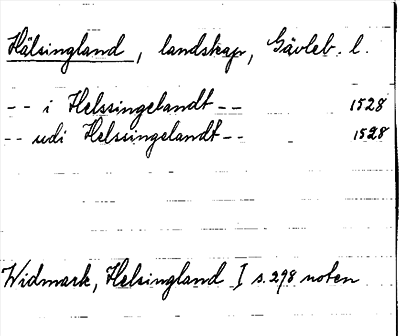 Hälsingland, landskap, Gävleb. l.
-- i Helssingelandt -- 1528
-- udi Helssingelandt -- 1528
Widmark, Helsingland I s. 298 noten